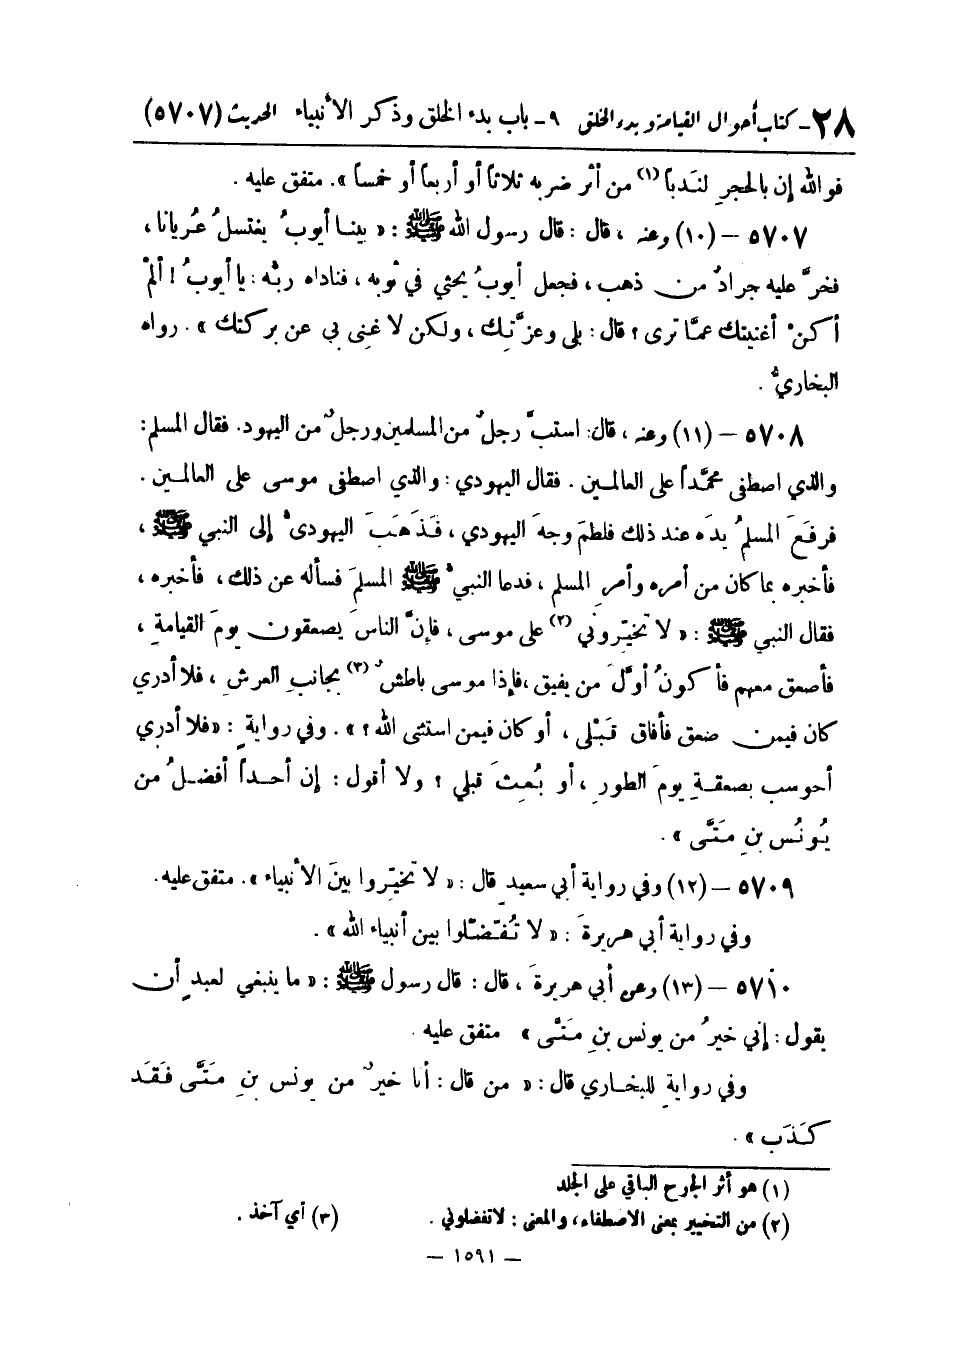 ٢٨- كتاب أحوال القيامة وبدء الخلق ٩- باب بدء الخلق وذكر الأنبياء الحديث (٥٧٠٧)
فوالله إن بالحجرِ لنَدباً (١) من أثر ضربه ثلاثاً أو أربعاً أو خمساً». متفق عليه.
٥٧٠٧ – (١٠) وعنه، قال: قال رسول الله ﷺ: «بينا أيوبُ يغتسلُ عُرياناً،
فخرَّ عليه جرادٌ من ذهب، فجعل أيوبُ يحثي في ثوبه، فناداه ربُّه: يا أيوبُ! ألمْ
أكنْ أغنيتك عمَّا ترى؟ قال: بلى وعزَّتِك، ولكن لا غنى بي عن بركتك». رواه
البخاريُّ.
٥٧٠٨ – (١١) وعنه، قال: استبَّ رجلٌ من المسلمين ورجلٌ من اليهود. فقال المسلم:
والذي اصطفى محمَّداً على العالمين. فقال اليهودي: والذي اصطفى موسى على العالمين.
فرفعَ المسلمُ يدَه عند ذلك فلطمَ وجهَ اليهودي، فَذَهَبَ اليهوديُّ إلى النبي ﷺ،
فأخبره بما كان من أمره وأمرِ المسلم، فدعا النبيُّ ﷺ المسلمَ فسأله عن ذلك، فأخبره،
فقال النبي ﷺ: «لا تخيّروني (٢) على موسى، فإنَّ الناسَ يصعقون يومَ القيامةِ،
فأصعق معهم فأكونُ أوَّلَ من يفيق، فإذا موسى باطشٌ (٣) بجانبِ العرشِ، فلا أدري
كان فيمن صعق فأفاق قَبْلي، أو كان فيمن استثنى الله؟». وفي روايةٍ: «فلا أدري
أحوسب بصعقةِ يومَ الطورِ، أو بُعِثَ قبلي؟ ولا أقول: إن أحداً أفضلُ من
يُونُس بنِ مَتَّى».
٥٧٠٩ – (١٢) وفي رواية أبي سعيدٍ قال: «لا تخيّروا بينَ الأنبياء». متفق عليه.
وفي رواية أبي هريرةَ: «لا تُفضّلوا بين أنبياء الله».
٥٧١٠ – (١٣) وعن أبي هريرةَ، قال: قال رسول ﷺ: «ما ينبغي لعبدٍ أن
يقول: إني خيرٌ من يونس بنِ مَتَّى» متفق عليه.
وفي روايةٍ للبخاري قال: «من قال: أنا خيرٌ من يونس بنِ مَتَّى فَقَد
كَذَب».
(١) هو أثر الجرح الباقي على الجلد
(٢) من التخيير بمعنى الاصطفاء، والمعنى: لاتفضلوني. (٣) أي آخذ.
– ١٥٩١ –